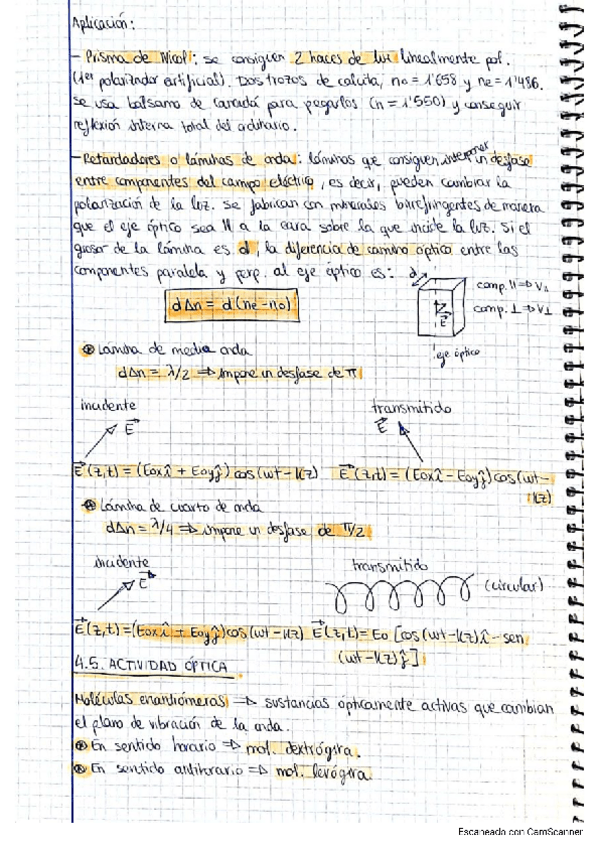 Aplicación:
- Prisma de Nicol: se consiguen 2 haces de luz linealmente pol.
(1er polarizador artificial). Dos trozos de calcita, no = 1'658 y ne = 1'486.
Se usa bálsamo de Canadá para pegarlos (n = 1'550) y conseguir
reflexión interna total del ordinario.
- Retardadores o láminas de onda: láminas que consiguen interponer un desfase
entre componentes del campo eléctrico, es decir, pueden cambiar la
polarización de la luz. Se fabrican con materiales birrefringentes de manera
que el eje óptico sea || a la cara sobre la que incide la luz. Si el
grosor de la lámina es d, la diferencia de camino óptico entre las
componentes paralela y perp. al eje óptico es:
d
comp. || => V⊥
dΔn = d(ne - no)
comp. ⊥ => V⊥
E
eje óptico
Lámina de media onda
dΔn = λ/2 => Impone un desfase de π
incidente transmitido
E E
E(z,t) = (Eox î + Eoy ĵ) cos(wt - kz) E(z,t) = (Eox î - Eoy ĵ) cos(wt -
kz)
Lámina de cuarto de onda
dΔn = λ/4 => impone un desfase de π/2
incidente transmitido
E (circular)
E(z,t) = (Eox î + Eoy ĵ) cos(wt - kz) E(z,t) = Eo [cos(wt - kz) î - sen
(wt - kz) ĵ]
4.5. ACTIVIDAD ÓPTICA
Moléculas enantiómeras => sustancias ópticamente activas que cambian
el plano de vibración de la onda.
En sentido horario => mol. dextrógira.
En sentido antihorario => mol. levógira.
Escaneado con CamScanner